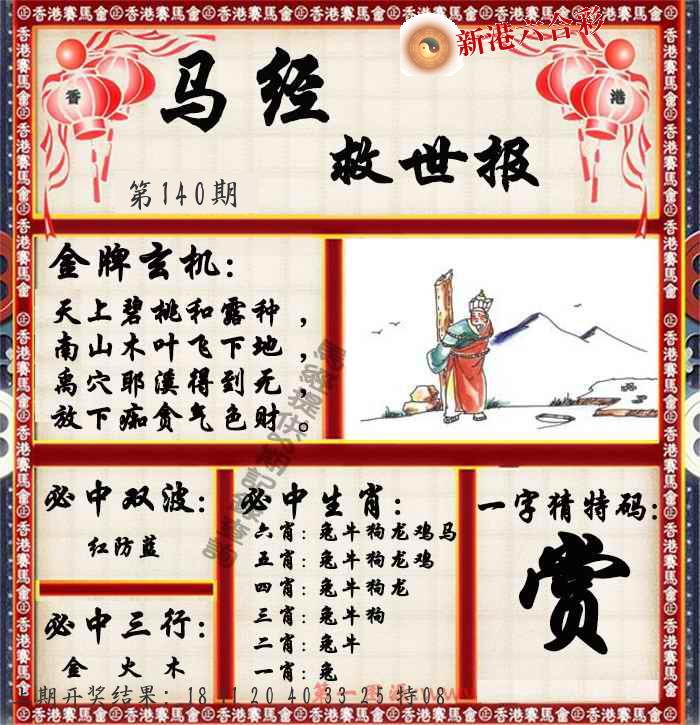 新港六合彩
香
港
马经
救世报
第140期
金牌玄机：
天上碧桃和露种，
南山木叶飞下地，
禹穴耶溪得到无，
放下痴贪气色财。
必中双波：
红防蓝
必中三行：
金 火 木
必中生肖：
六肖：兔牛狗龙鸡马
五肖：兔牛狗龙鸡
四肖：兔牛狗龙
三肖：兔牛狗
二肖：兔牛
一肖：兔
一字猜特码：
赏
期开奖结果：18 11 20 40 33 25 特08
香港赛馬會